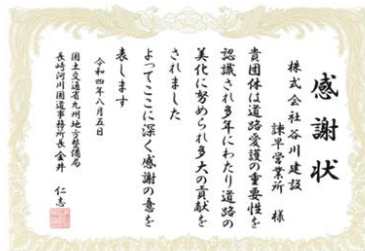 感謝状
株式会社谷川建設
諫早営業所 様
貴団体は道路愛護の重要性を
認識され多年にわたり道路の
美化に努められ多大の貢献を
されました
よってここに深く感謝の意を
表します
令和四年八月五日
国土交通省九州地方整備局
長崎河川国道事務所長 金井 仁志